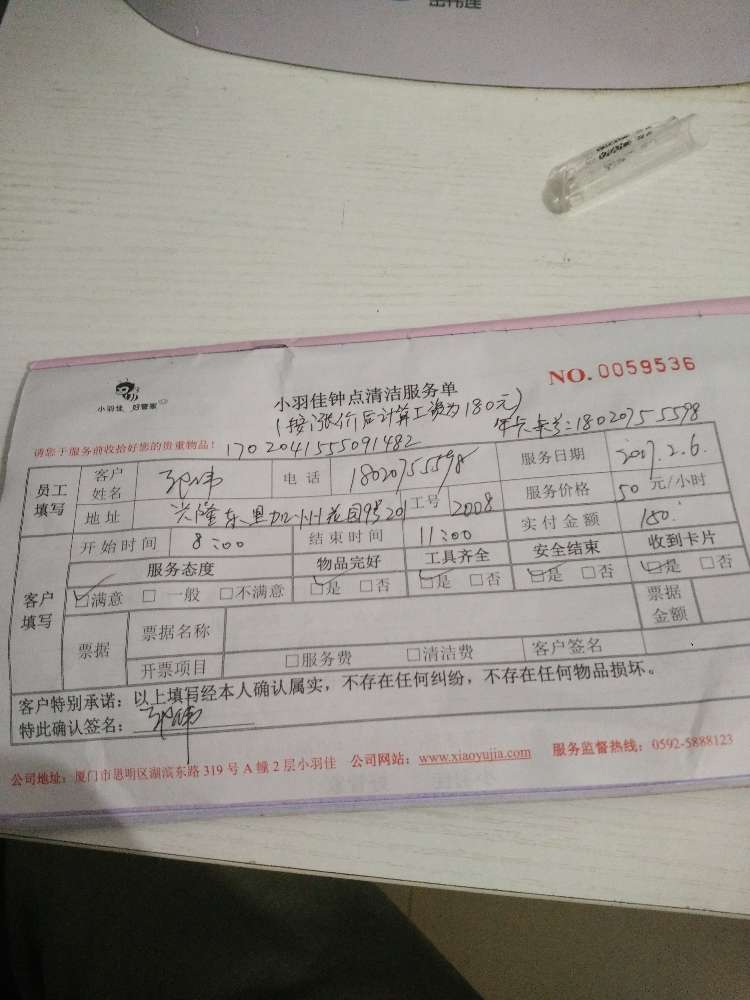 小羽佳 好管家
NO. 0059536
小羽佳钟点清洁服务单
(按涨价后计算工资为180元)
年卡卡号:18020755598
请您于服务前收拾好您的贵重物品!
1702041555091482
员工填写
客户姓名
电话 18020755598
服务日期 2017.2.6.
地址 兴隆东里加州花园9号201
工号 2008
服务价格 50元/小时
开始时间 8:00
结束时间 11:00
实付金额 150.
客户填写
服务态度 物品完好 工具齐全 安全结束 收到卡片
☑满意 □一般 □不满意 ☑是 □否 ☑是 □否 ☑是 □否 ☑是 □否
票据 票据名称 票据金额
开票项目 □服务费 □清洁费 客户签名
客户特别承诺:以上填写经本人确认属实,不存在任何纠纷,不存在任何物品损坏。
特此确认签名:
公司地址:厦门市思明区湖滨东路 319 号 A 幢 2 层小羽佳 公司网站:www.xiaoyujia.com 服务监督热线:0592-5888123